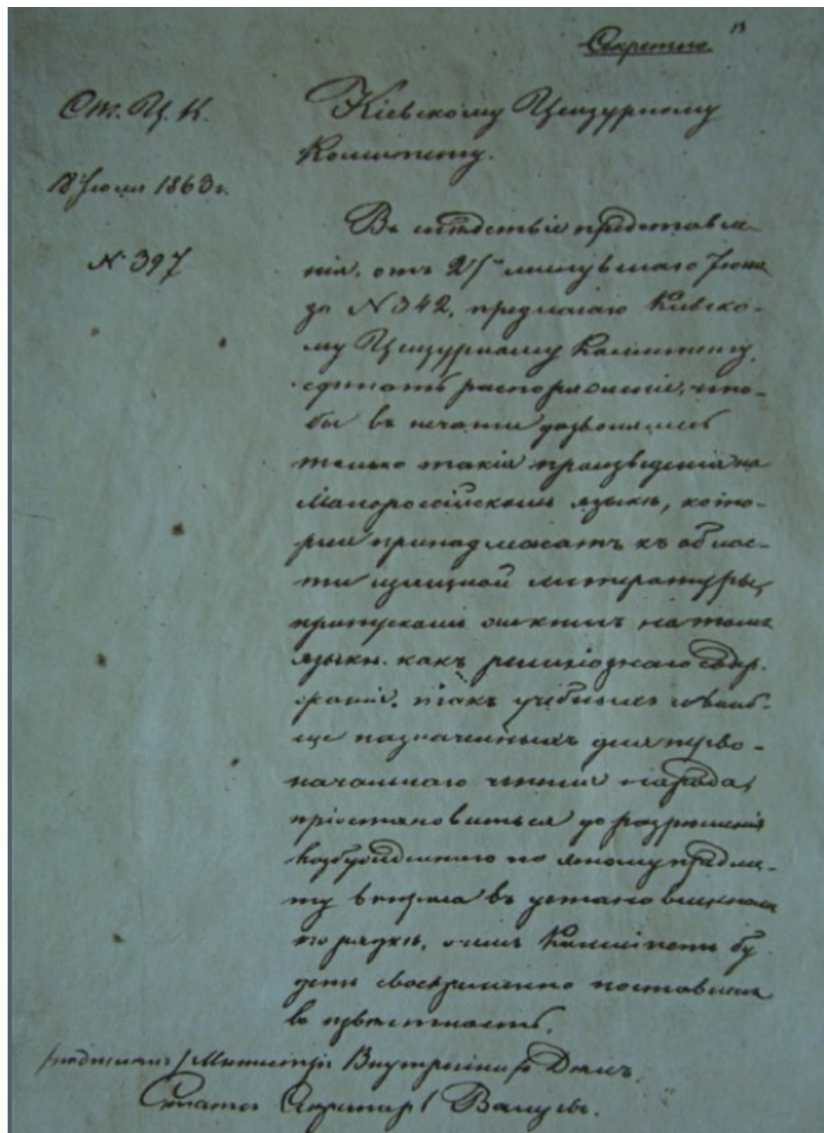 Секретно.
Ст. Ц. К.
18 Іюля 1863 г.
№ 397
Кіевскому Цензурному
Комитету.
Въ слѣдствіе представле-
нія, отъ 27 минувшаго Іюня
за № 342, предлагаю Кіевско-
му Цензурному Комитету,
сдѣлать распоряженіе, что-
бы къ печати дозволялись
только такія произведенія на
Малороссійскомъ языкѣ, кото-
рыя принадлежатъ къ облас-
ти изящной литературы,
пропускомъ же книгъ на томъ
языкѣ, какъ религіознаго содер-
жанія, такъ учебныхъ и вооб-
ще назначенныхъ для перво-
начальнаго чтенія народа,
пріостановиться до разрѣшенія
возбужденнаго по этому предме-
ту вопроса въ установленномъ
порядкѣ, о чемъ Комитетъ бу
детъ своевременно поставленъ
въ извѣстность.
/подписалъ/ Министръ Внутреннихъ Дѣлъ,
Статсъ Секретарь Валуевъ.